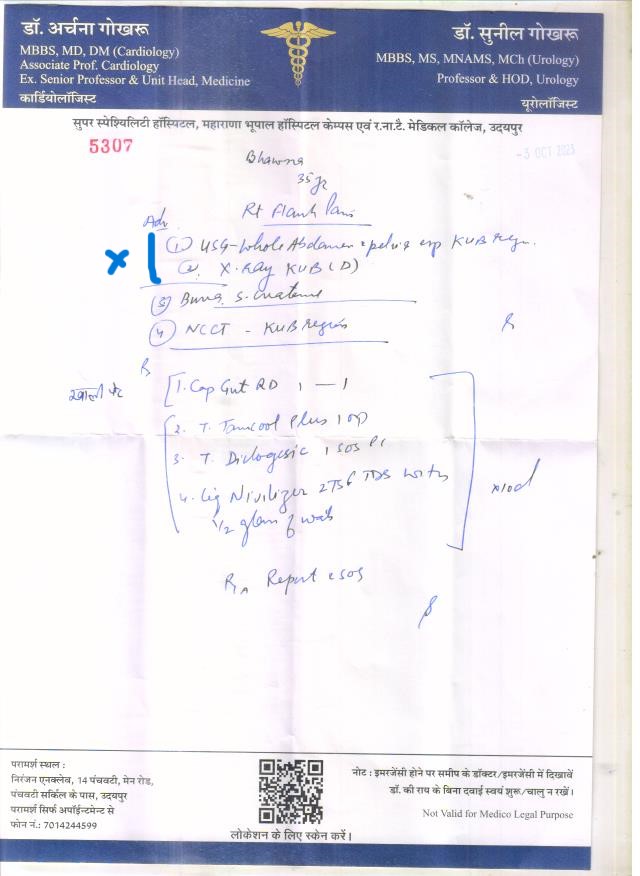 डॉ. अर्चना गोखरू
MBBS, MD, DM (Cardiology)
Associate Prof. Cardiology
Ex. Senior Professor & Unit Head, Medicine
कार्डियोलॉजिस्ट
डॉ. सुनील गोखरू
MBBS, MS, MNAMS, MCh (Urology)
Professor & HOD, Urology
यूरोलॉजिस्ट
सुपर स्पेश्यिलिटी हॉस्पिटल, महाराणा भूपाल हॉस्पिटल केम्पस एवं र.ना.टै. मेडिकल कॉलेज, उदयपुर
5307
- 3 OCT 2023
Bhawna
35 yr
Rt Flank Pain
Adv
① USG-Whole Abdomen & pelvis esp KUB Region
② X-Ray KUB (D)
③ S. Creatinine
④ NCCT - KUB Region
खाली पेट
1. Cap Gut RD 1 — 1
2. T. Plus 1 OD
3. T. Diclogesic 1 SOS
4. Liq TSF TDS with
1/2 glass of water
x10d
Report & SOS
परामर्श स्थल :
निरंजन एनक्लेव, 14 पंचवटी, मेन रोड,
पंचवटी सर्किल के पास, उदयपुर
परामर्श सिर्फ अपॉईन्टमेन्ट से
फोन नं.: 7014244599
लोकेशन के लिए स्केन करें।
नोट : इमरजेंसी होने पर समीप के डॉक्टर/इमरजेंसी में दिखावें
डॉ. की राय के बिना दवाई स्वयं शुरू/चालु न रखें।
Not Valid for Medico Legal Purpose